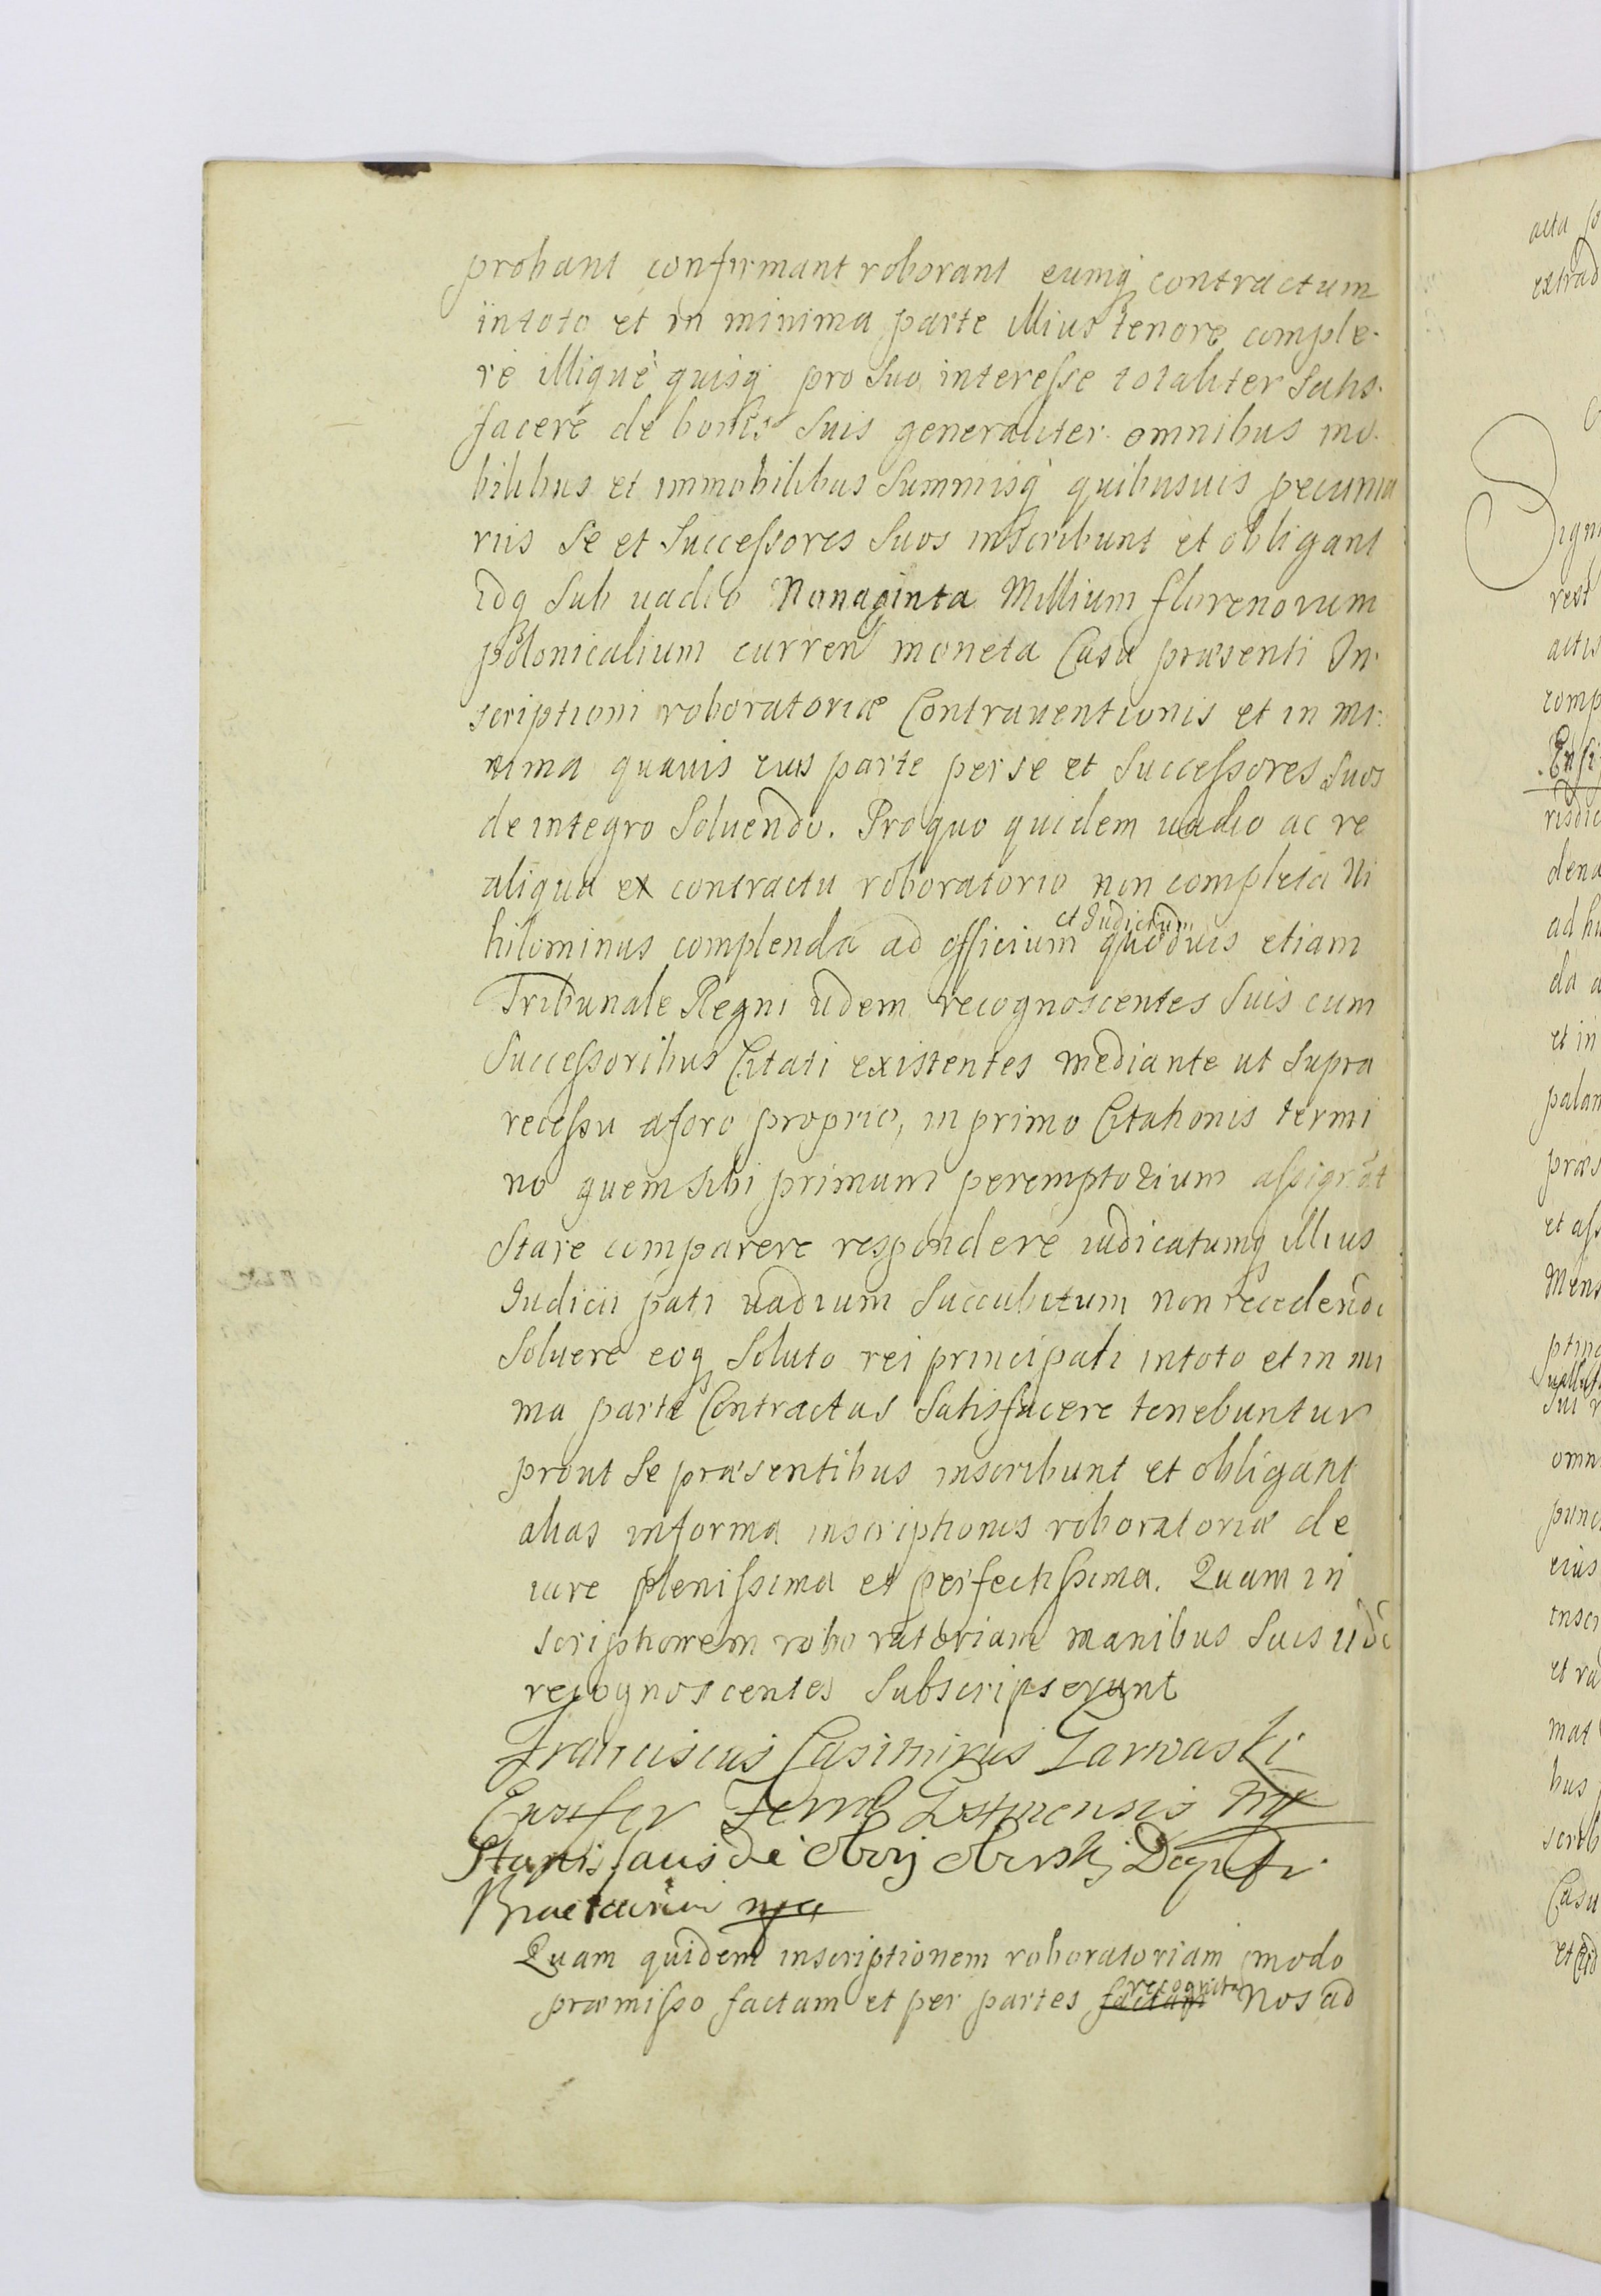 probant confirmant roborant eumq contractum
in toto et in minima parte illius tenore comple-
re illiquè quisq pro suo interesse totaliter satis-
facere de bonis suis generaliter omnibus mo-
bilibus et immobilibus summisq quibusuis pecunia
riis se et successores suos inscribunt et obligant
idq sub uadio Nonaginta Millium florenorum
polonicalium curren moneta Casu præsenti In-
scriptioni roboratoriæ Contrauentionis et in mi-
nima quauis eius parte per se et successores suos
de integro soluendo. Pro quo quidem uadio ac re
aliqua ex contractu roboratorio non completa Ni
hilominus complenda ad officium et Iudicium quoduis etiam
Tribunale Regni iidem recognoscentes suis cum
successoribus Citati existentes mediante ut supra
recessu a foro proprio, in primo Citationis termi
no quem sibi primum peremptorium assignāt
stare comparere respondere iudicatumq illius
Iudicii pati uadium succubitum non recedendo
soluere eoq soluto rei principali in toto et in mi
ma parte Contractus satisfacere tenebuntur
prout se præsentibus inscribunt et obligant
alias in forma inscriptionis roboratoriæ de
iure plenissima et perfectissima. Quam in
scriptionem roboratoriam manibus suis iidē
recognoscentes subscripserunt
Franciscus Casimirus
Ensifer
Stanislaus de Obory Oborski
mp
Quam quidem inscriptionem roboratoriam modo
præmisso factam et per partes factam recognitā Nos ad
acta
extrad
rest
actis
comp
Ensi
risdic
dena
ad hu
da a
et in
palam
præs
et ass
Mens
omn
punc
eius
inscr
et ra
mat
bus
scrib
Casu